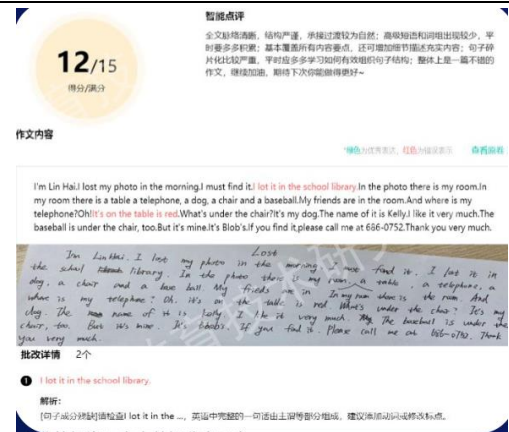 智能点评
全文脉络清晰，结构严谨，承接过渡较为自然；高级短语和词组出现较少，平
时要多多积累；基本覆盖所有内容要点，还可增加细节描述充实内容；句子碎
片化比较严重，平时应多多学习如何有效组织句子结构；整体上是一篇不错的
作文，继续加油，期待下次你能做得更好~
12/15
得分/满分
作文内容
*绿色为优秀表达，红色为错误表示
I'm Lin Hai.I lost my photo in the morning.I must find it.I lot it in the school library.In the photo there is my room.In
my room there is a table a telephone, a dog, a chair and a baseball.My friends are in the room.And where is my
telephone?Oh!It's on the table is red.What's under the chair?It's my dog.The name of it is Kelly.I like it very much.The
baseball is under the chair, too.But it's mine.It's Blob's.If you find it,please call me at 686-0752.Thank you very much.
Lost
I'm Lin Hai. I lost my photo in the morning. I must find it. I lot it in
the school library. In the photo there is my room. In my room there is a table, a telephone, a
dog, a chair and a base ball. My frieds in the room. And
where is my telephone? Oh. it's on the table is red. What's under the chair? It's my
dog. The name of it is Kelly. I like it very much. The baseball is under the
chair, too. But it's mine. It's bbobs. If you find it. Please call me at 686-0752. Thank
you very much.
批改详情 2个
1 I lot it in the school library.
解析:
[句子成分残缺]请检查I lot it in the ...，英语中完整的一句话由主谓等部分组成，建议添加动词或修改标点。